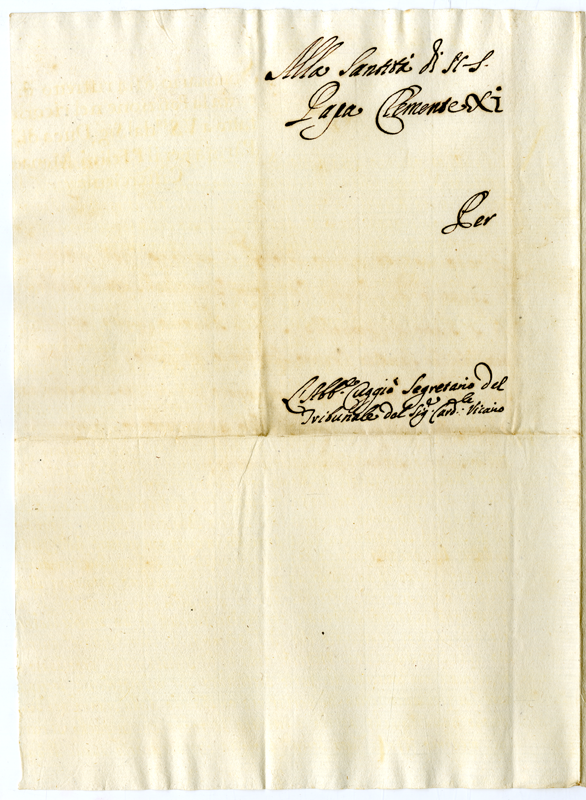 Alla Santità di N. S.
Papa Clemente XI
Per
L'Abb.e Cuggiò Segretario del
Tribunale del Sig.r Card.le Vicario